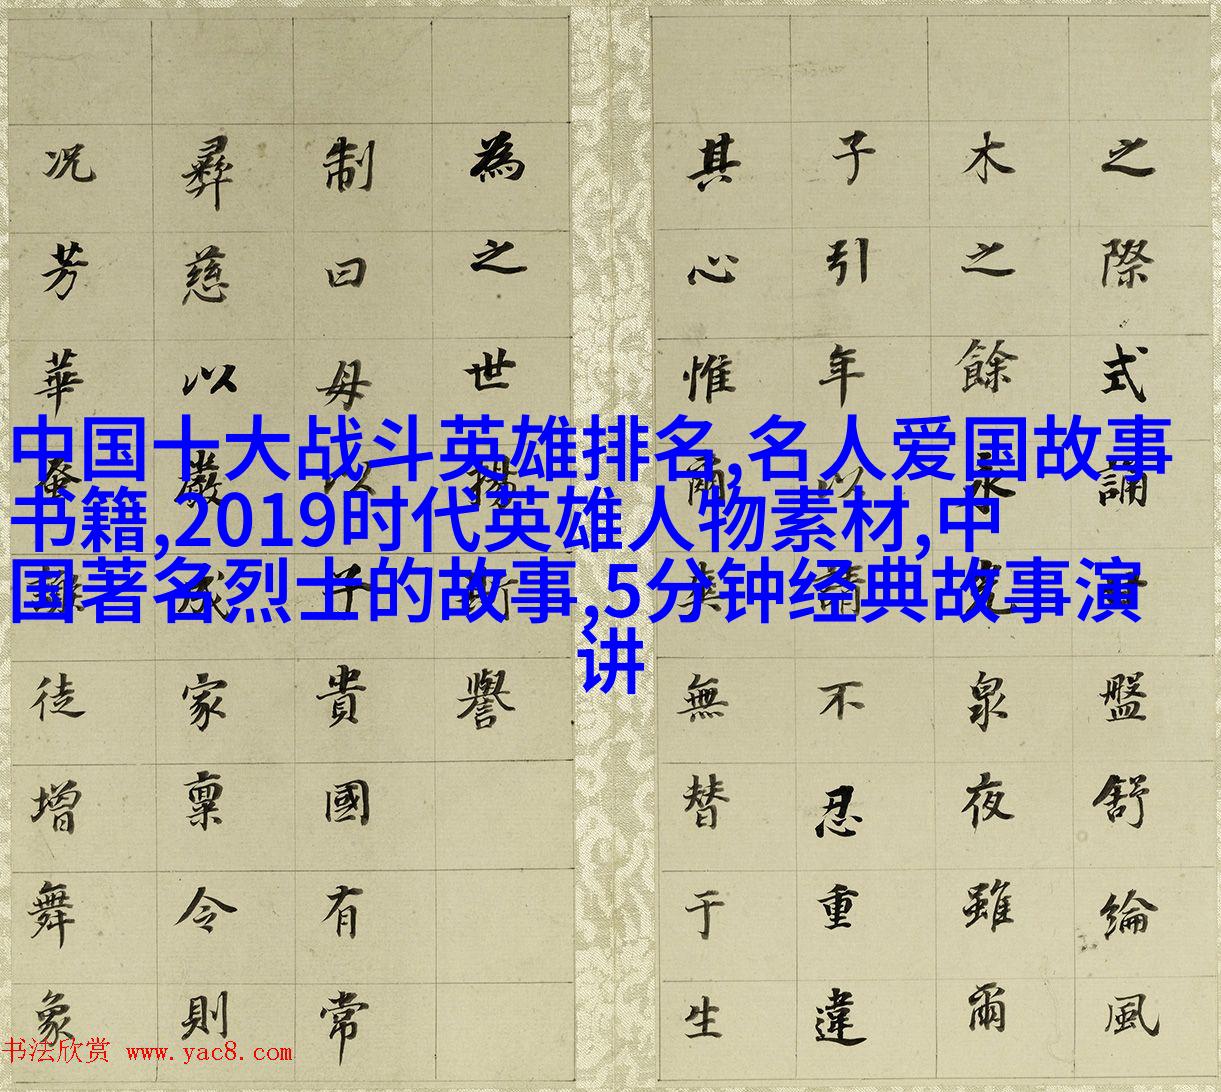 中国十大战斗英雄排名,名人爱国故事
书籍,2019时代英雄人物素材,中
国著名烈士的故事,5分钟经典故事演
讲
之際式誦盤舒綸風
木之餘永光泉夜雖爾
子引年以爾不忍重違
其心惟爾無替于生
為之世揚斯譽
制曰母以子貴國有常
彝慈以嚴成家稟令則
况芳華蚤徒增舞象
书法欣赏 www.yac8.com